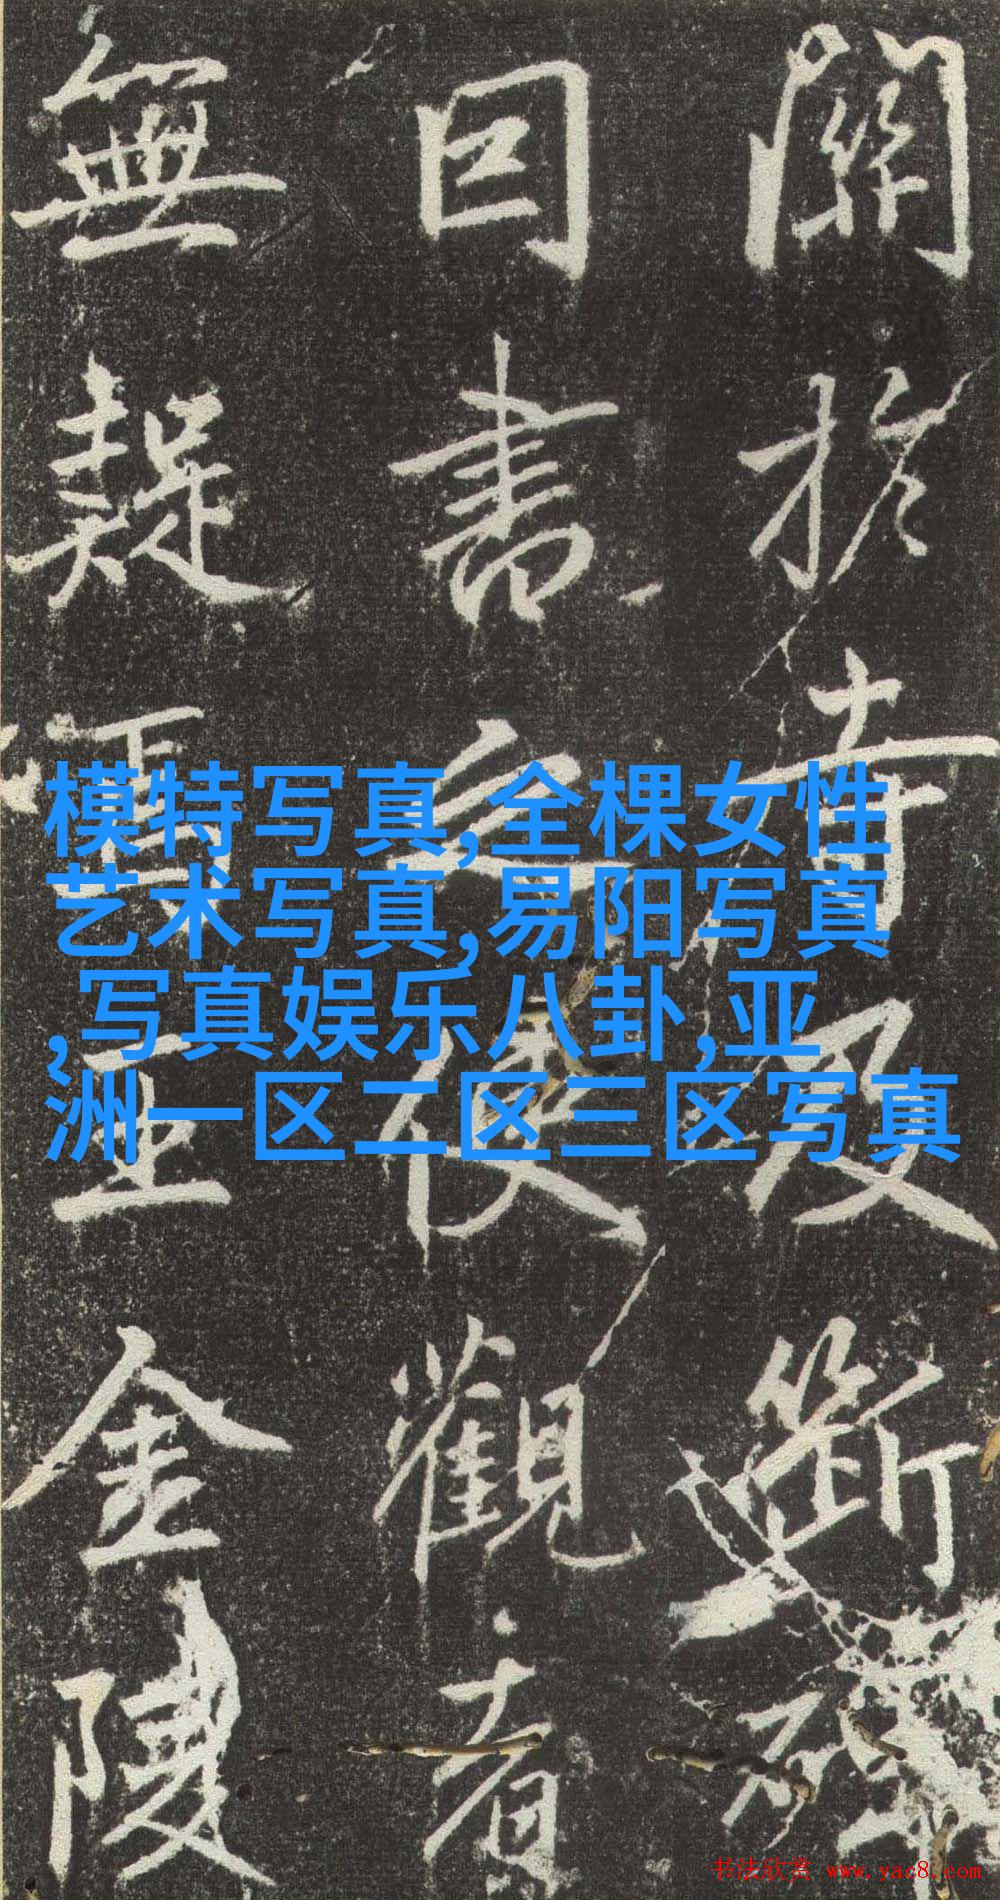 關於及斷
囙書之後觀者
無疑王金陵
模特写真,全棵女性
艺术写真,易阳写真
,写真娱乐八卦,亚
洲一区二区三区写真
书法欣赏 www.yac8.com